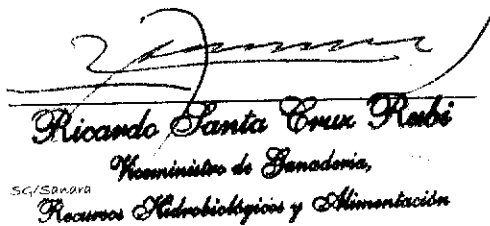 Ricardo Santa Cruz Rubí
Viceministro de Ganadería,
SG/Sanara
Recursos Hidrobiológicos y Alimentación